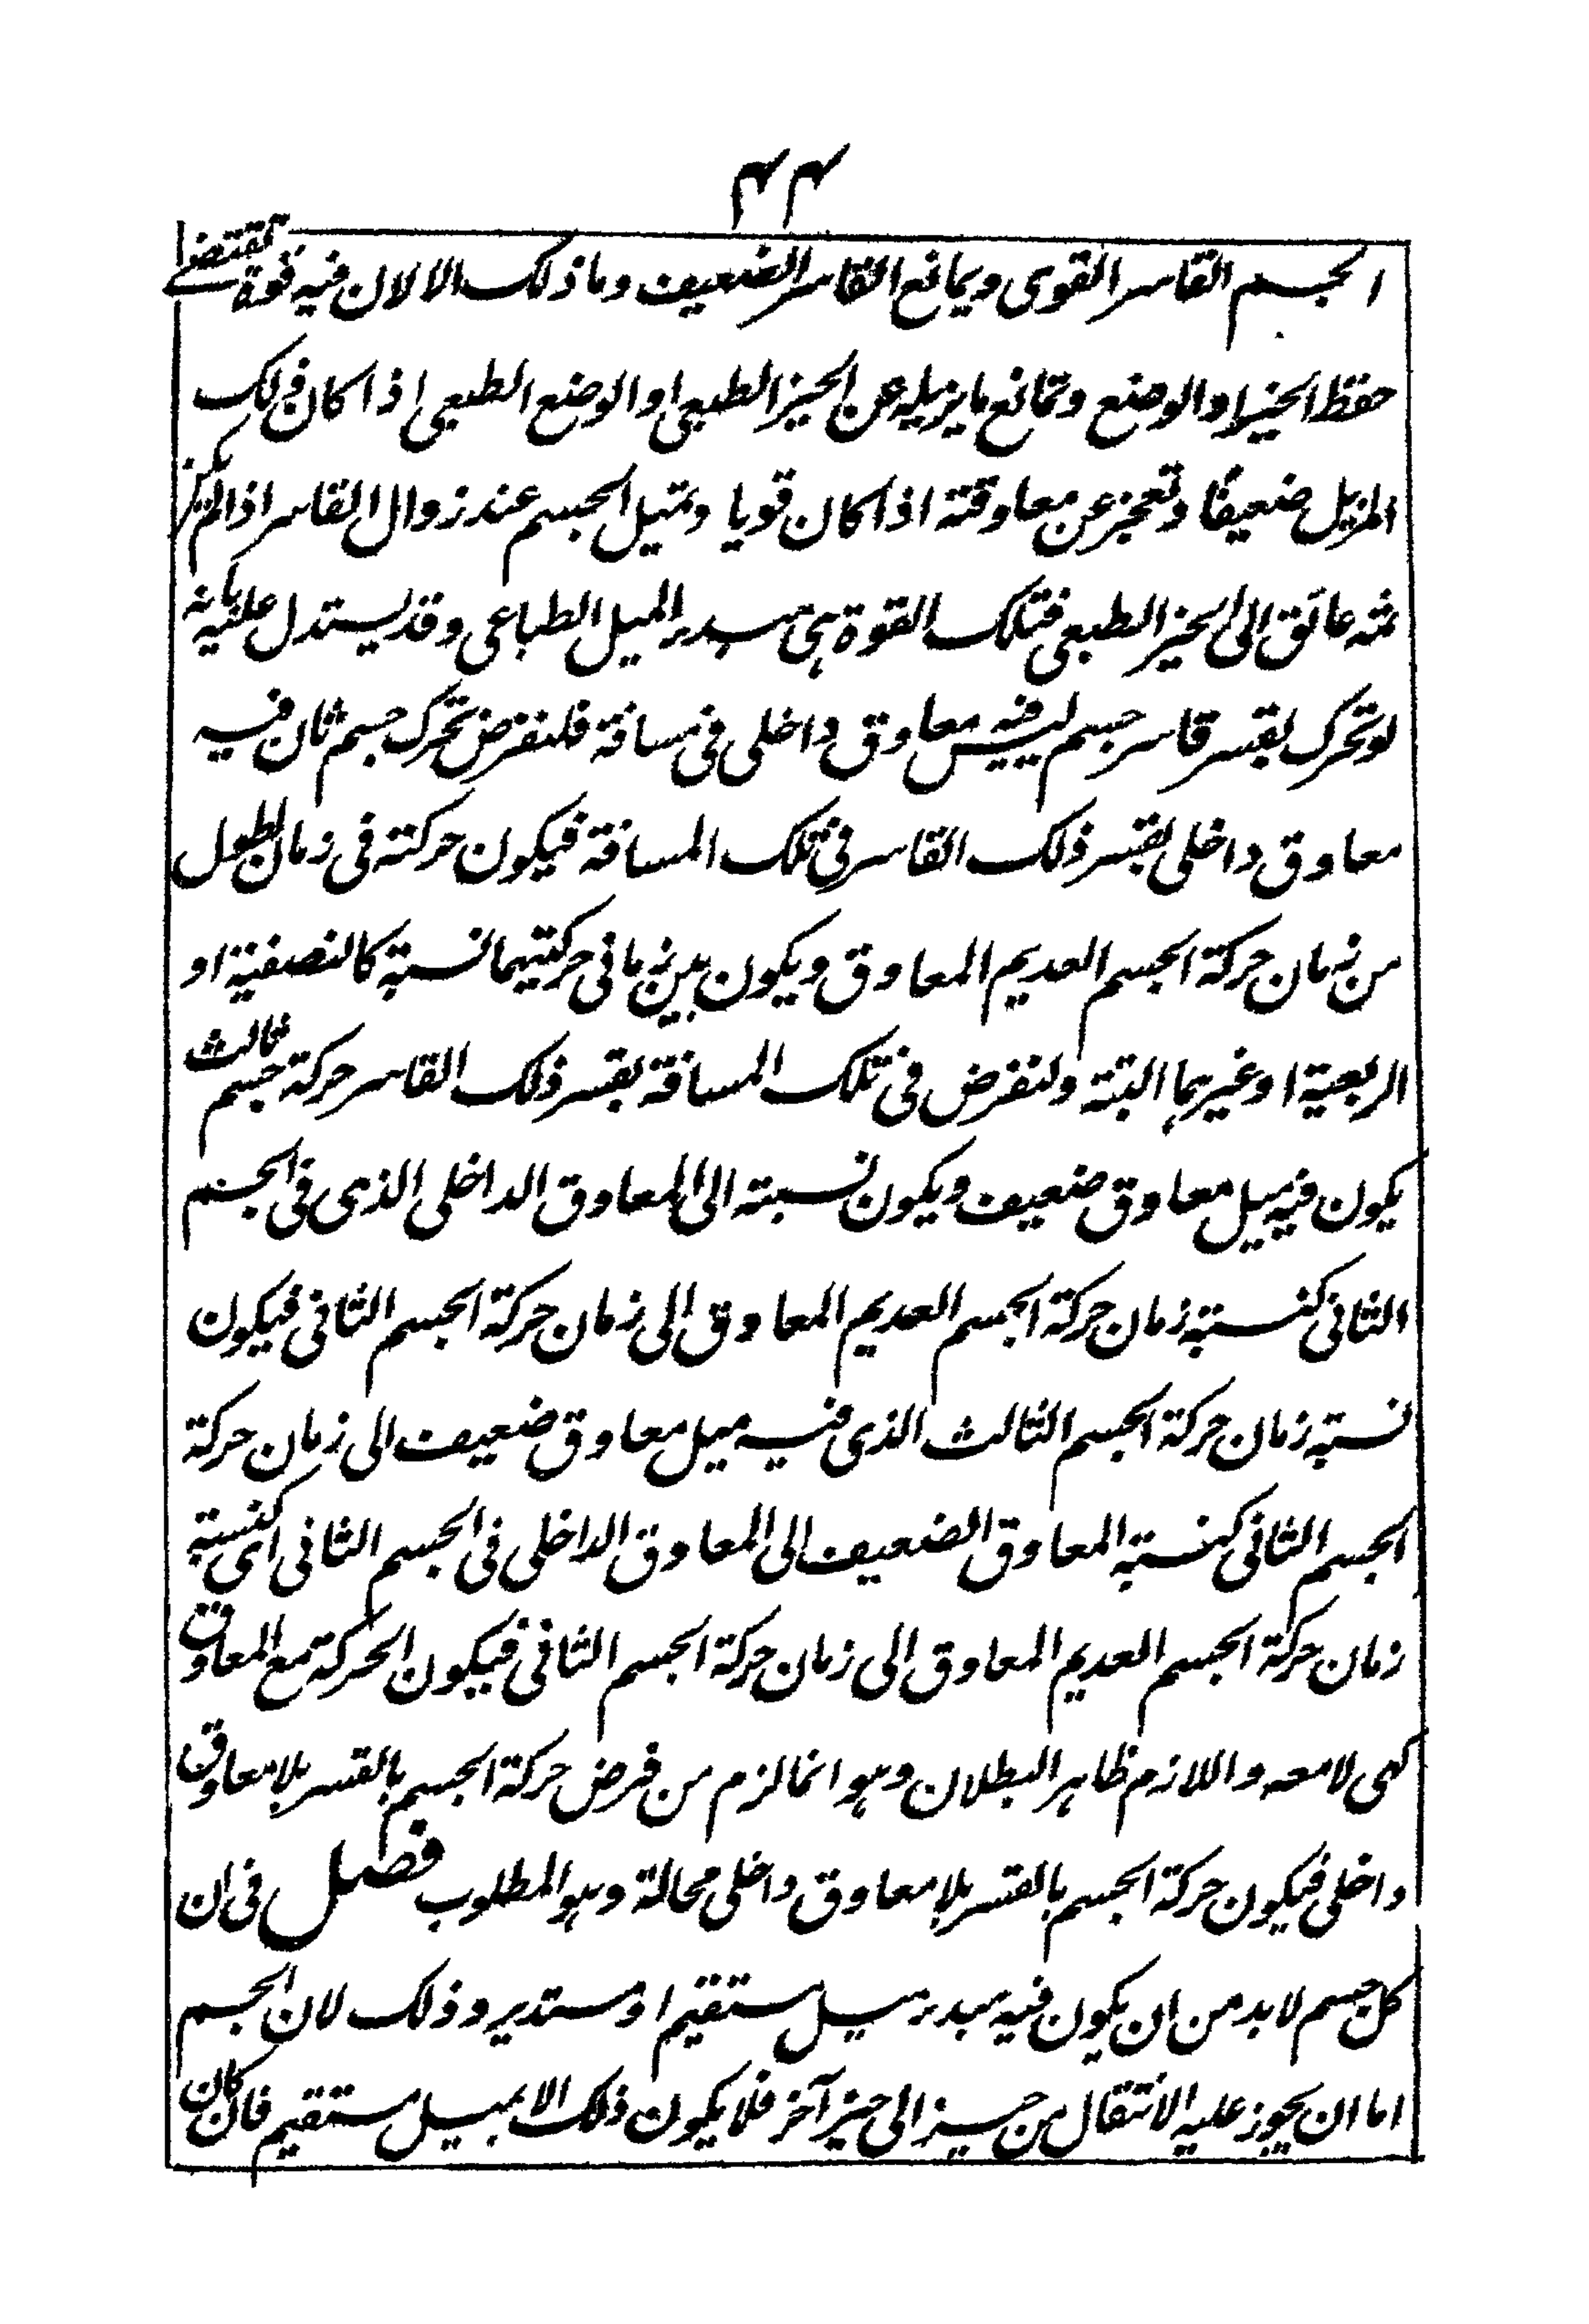 ۴۴
الجسم القاسر القوی ویمانع القاسر الضعیف وما ذلک الا لان فیه قوة تقتضی
حفظ الحیز او الوضع وتمانع ما یزیله عن الحیز الطبعی او الوضع الطبعی اذا کان ذلک
المزیل ضعیفا وتعجز عن معاوقته اذا کان قویا وتمیل الجسم عند زوال القاسر اذا لم یکن
ثمه عائق الی الحیز الطبعی فتلک القوة هی مبدء المیل الطباعی وقد یستدل علیه بانه
لو تحرک بقسر قاسر جسم لیس فیه معاوق داخلی فی مسافة فلنفرض تحرک جسم ثان فیه
معاوق داخلی بقسر ذلک القاسر فی تلک المسافة فیکون حرکته فی زمان اطول
من زمان حرکة الجسم العدیم المعاوق ویکون بین زمانی حرکتیهما نسبة کالنصفیة او
الربعیة او غیرهما البتة ولنفرض فی تلک المسافة بقسر ذلک القاسر حرکة جسم ثالث
یکون فیه میل معاوق ضعیف ویکون نسبته الی المعاوق الداخلی الذی فی الجسم
الثانی کنسبة زمان حرکة الجسم العدیم المعاوق الی زمان حرکة الجسم الثانی فیکون
نسبة زمان حرکة الجسم الثالث الذی فیه میل معاوق ضعیف الی زمان حرکة
الجسم الثانی کنسبة المعاوق الضعیف الی المعاوق الداخلی فی الجسم الثانی ای کنسبة
زمان حرکة الجسم العدیم المعاوق الی زمان حرکة الجسم الثانی فیکون الحرکة مع المعاوق
کهی لا معه واللازم ظاهر البطلان وهو انما لزم من فرض حرکة الجسم بالقسر بلا معاوق
داخلی فیکون حرکة الجسم بالقسر بلا معاوق داخلی محالة وهو المطلوب فصل فی ان
کل جسم لا بد من ان یکون فیه مبدء میل مستقیم او مستدیر وذلک لان الجسم
اما ان یجوز علیه الانتقال من حیز الی حیز آخر فلا یکون ذلک الا بمیل مستقیم فان کان